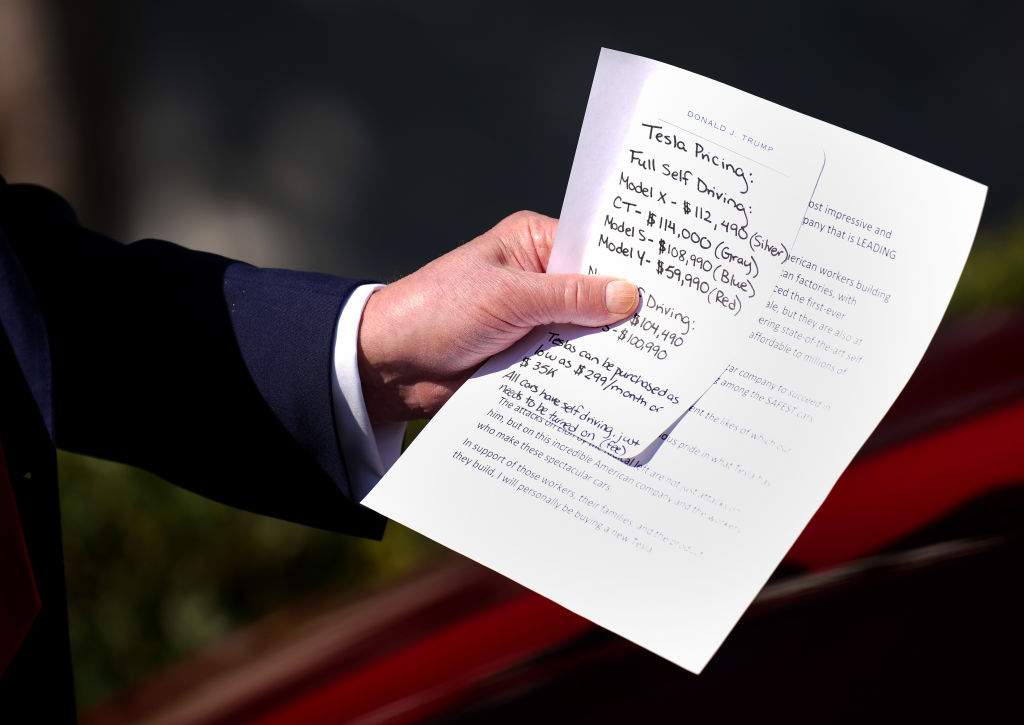 DONALD J. TRUMP
Tesla Pricing:
Full Self Driving:
Model X - $112,490 (Silver)
CT - $114,000 (Gray)
Model S - $108,990 (Blue)
Model Y - $59,990 (Red)
Driving:
$104,490
- $100,990
Teslas can be purchased as
low as $299/month or
$35K
All cars have self driving, just
needs to be turned on (fee)
ost impressive and
pany that is LEADING
erican workers building
an factories, with
ced the first-ever
ale, but they are also at
ering state-of-the-art self
affordable to millions of
ar company to succeed in
among the SAFEST cars
ent the likes of which our
us pride in what Tesla has
The attacks on left are not just attacks on
him, but on this incredible American company and the workers
who make these spectacular cars.
In support of those workers, their families, and the product
they build, I will personally be buying a new Tesla